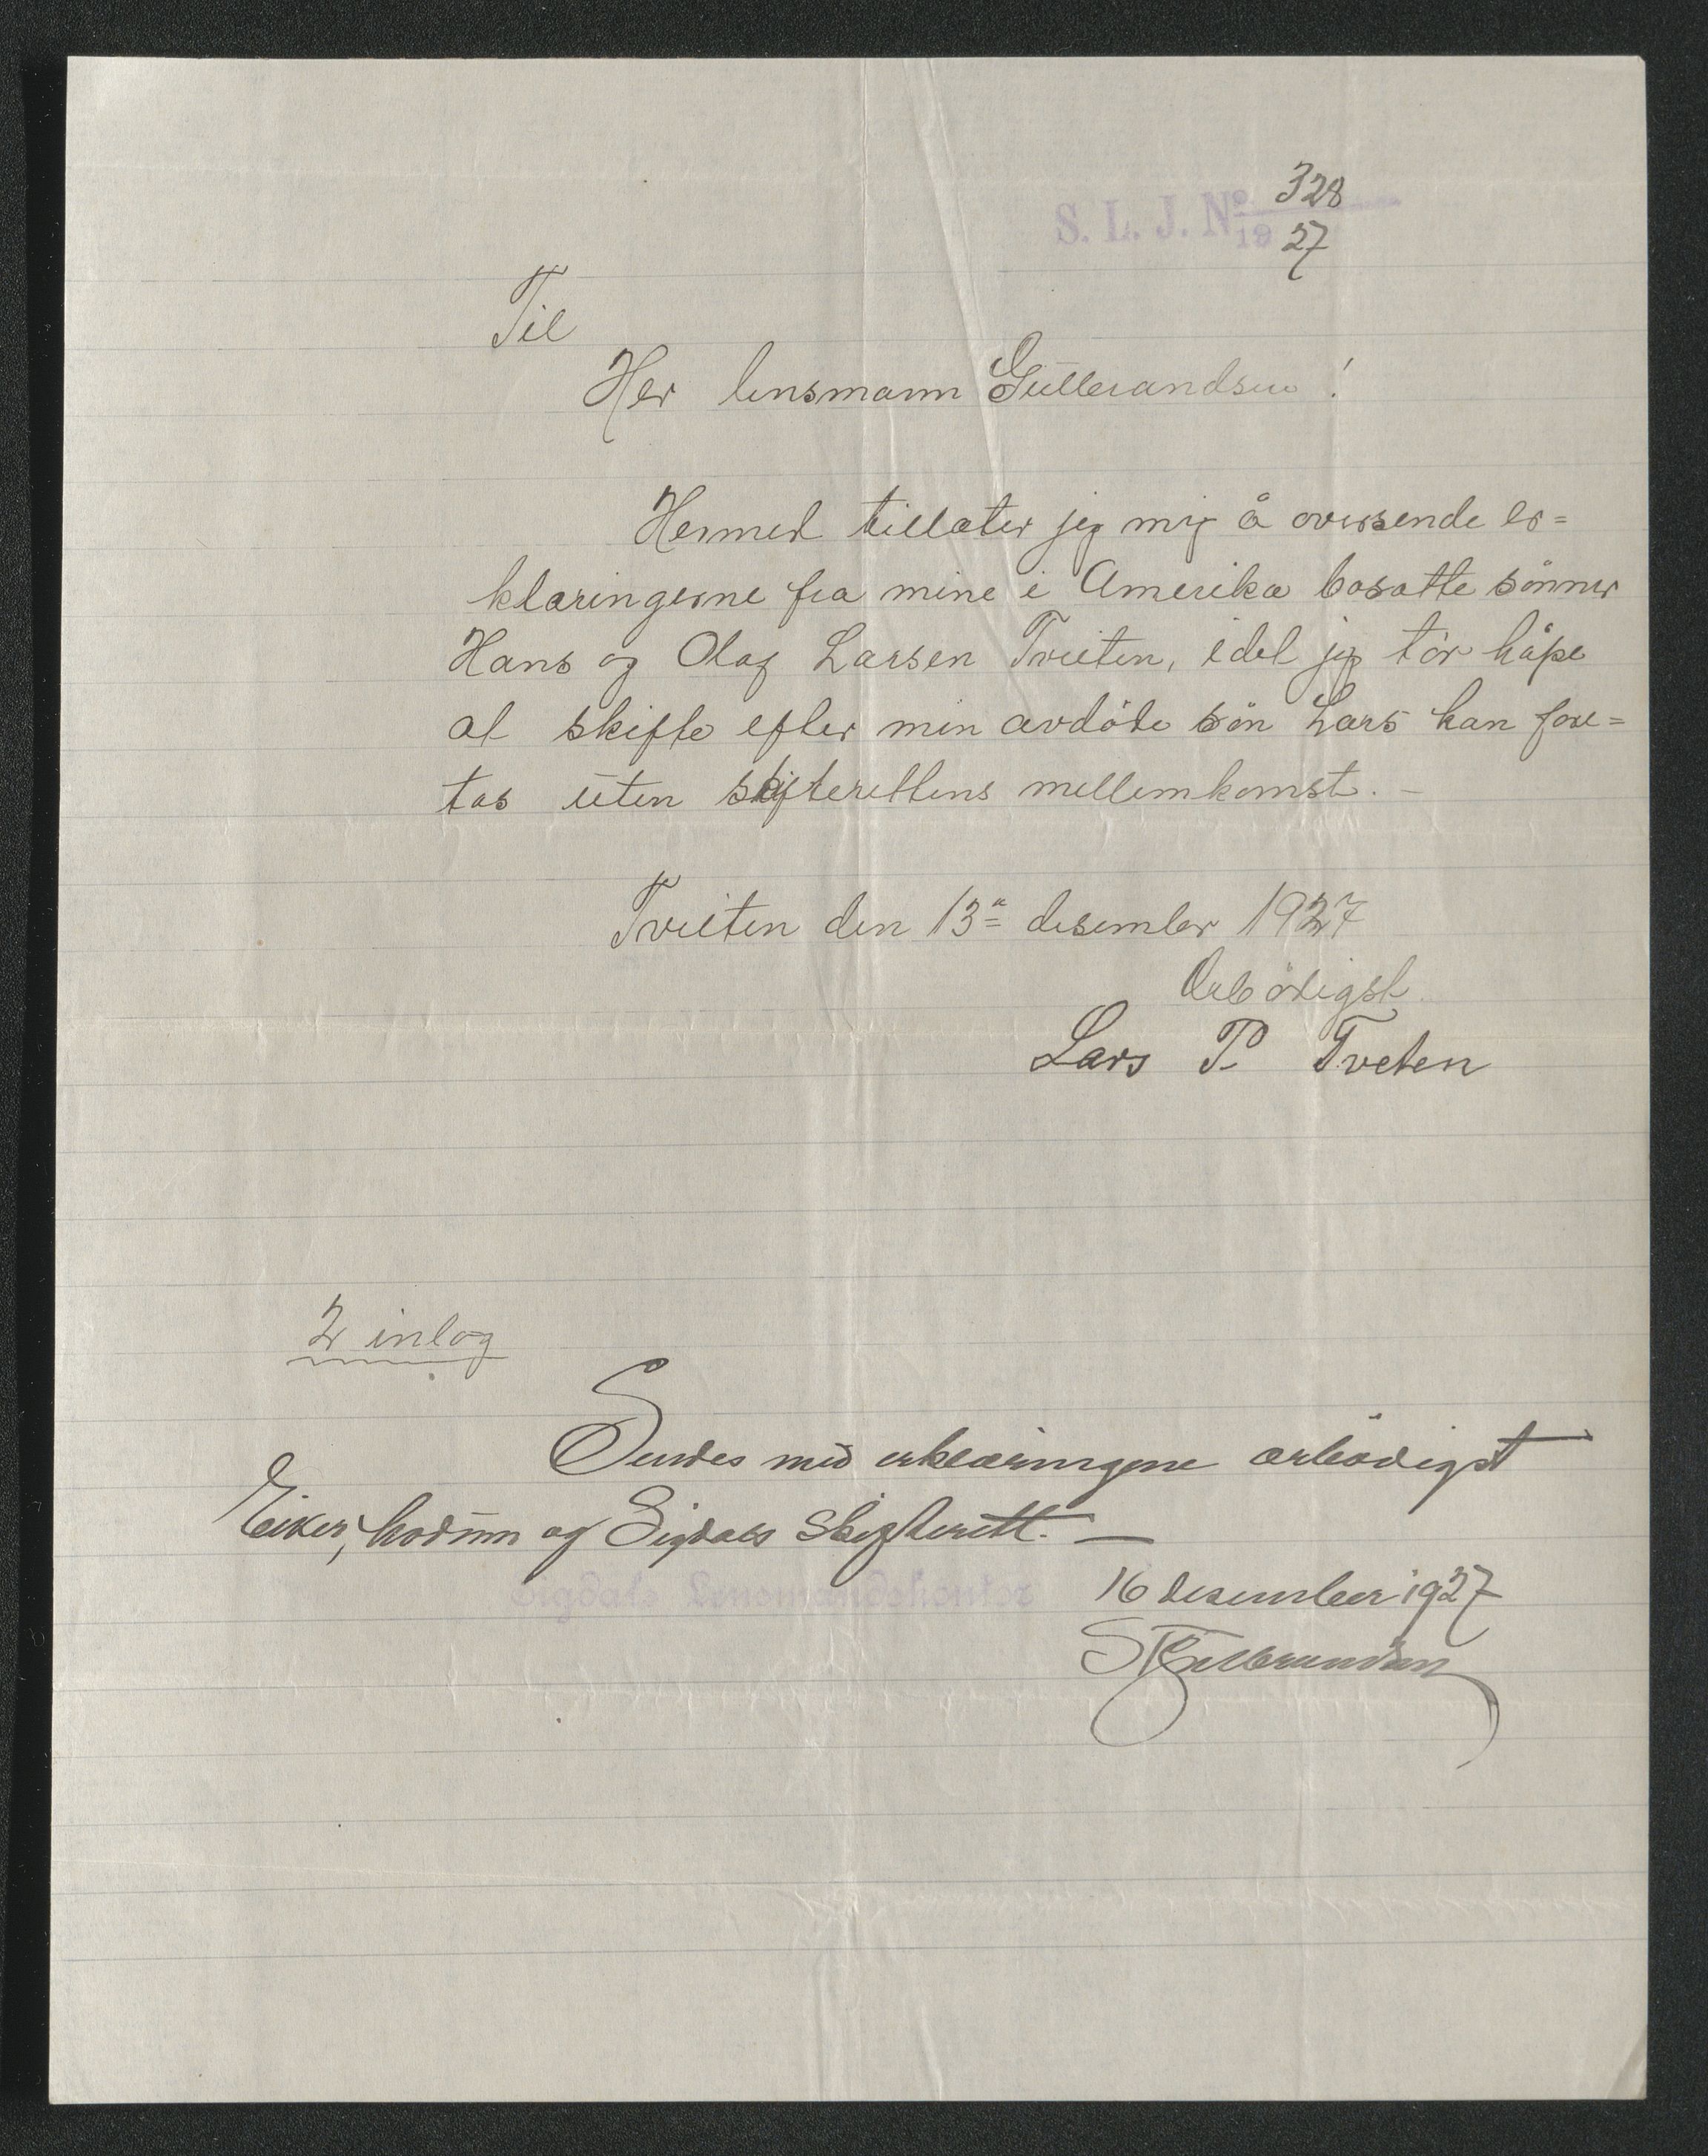 S. L. J. No 328
19 27
Til
Her lensmann Gulbrandsen!
Hermed tillater jeg mig å oversende er=
klæringerne fra mine i Amerika bosatte sönner
Hans og Olaf Larsen Tveiten, idet jeg tör håpe
at skifte efter min avdöde sön Lars kan fore=
tas uten skifterettens mellemkomst. –
Tveiten den 13de desember 1927
Ærbödigst
Lars P. Tveten
2 inlæg
Sendes med erklæringene ærbödigst
Eiker, Modum og Sigdals skifterett. —
Sigdals Lensmandskontor 16 desember 1927
Gulbrandsen